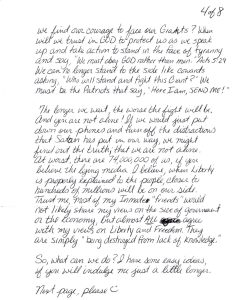 4 of 8
we find our courage to face our Giants? When
will we trust in GOD to protect us as we speak
up and take action to stand in the face of tyranny
and say, "We must obey GOD rather than men." Acts 5:29
We can no longer stand to the side like cowards
asking, "Who will stand and fight this Giant?" We
must be the Patriots that say, "Here I am, SEND ME!"
The longer we wait, the worse the fight will be,
And you are not alone! If we would just put
down our phones and turn off the distractions
that Satan has put in our way, we might
find out the truth, that we are not alone.
At worst, there are 74,000,000 of us, if you
believe the lying media. I believe, when Liberty
is properly explained to the people, close to
hundreds of millions will be on our side.
Trust me, most of my Inmate "friends" would
not likely share my views on the size of government
or the Economy, but almost ALL agree
with my views on Liberty and Freedom. They
are simply "being destroyed from lack of knowledge."
So, what can we do? I have some easy ideas,
if you will indulge me just a little longer.
Next page, please